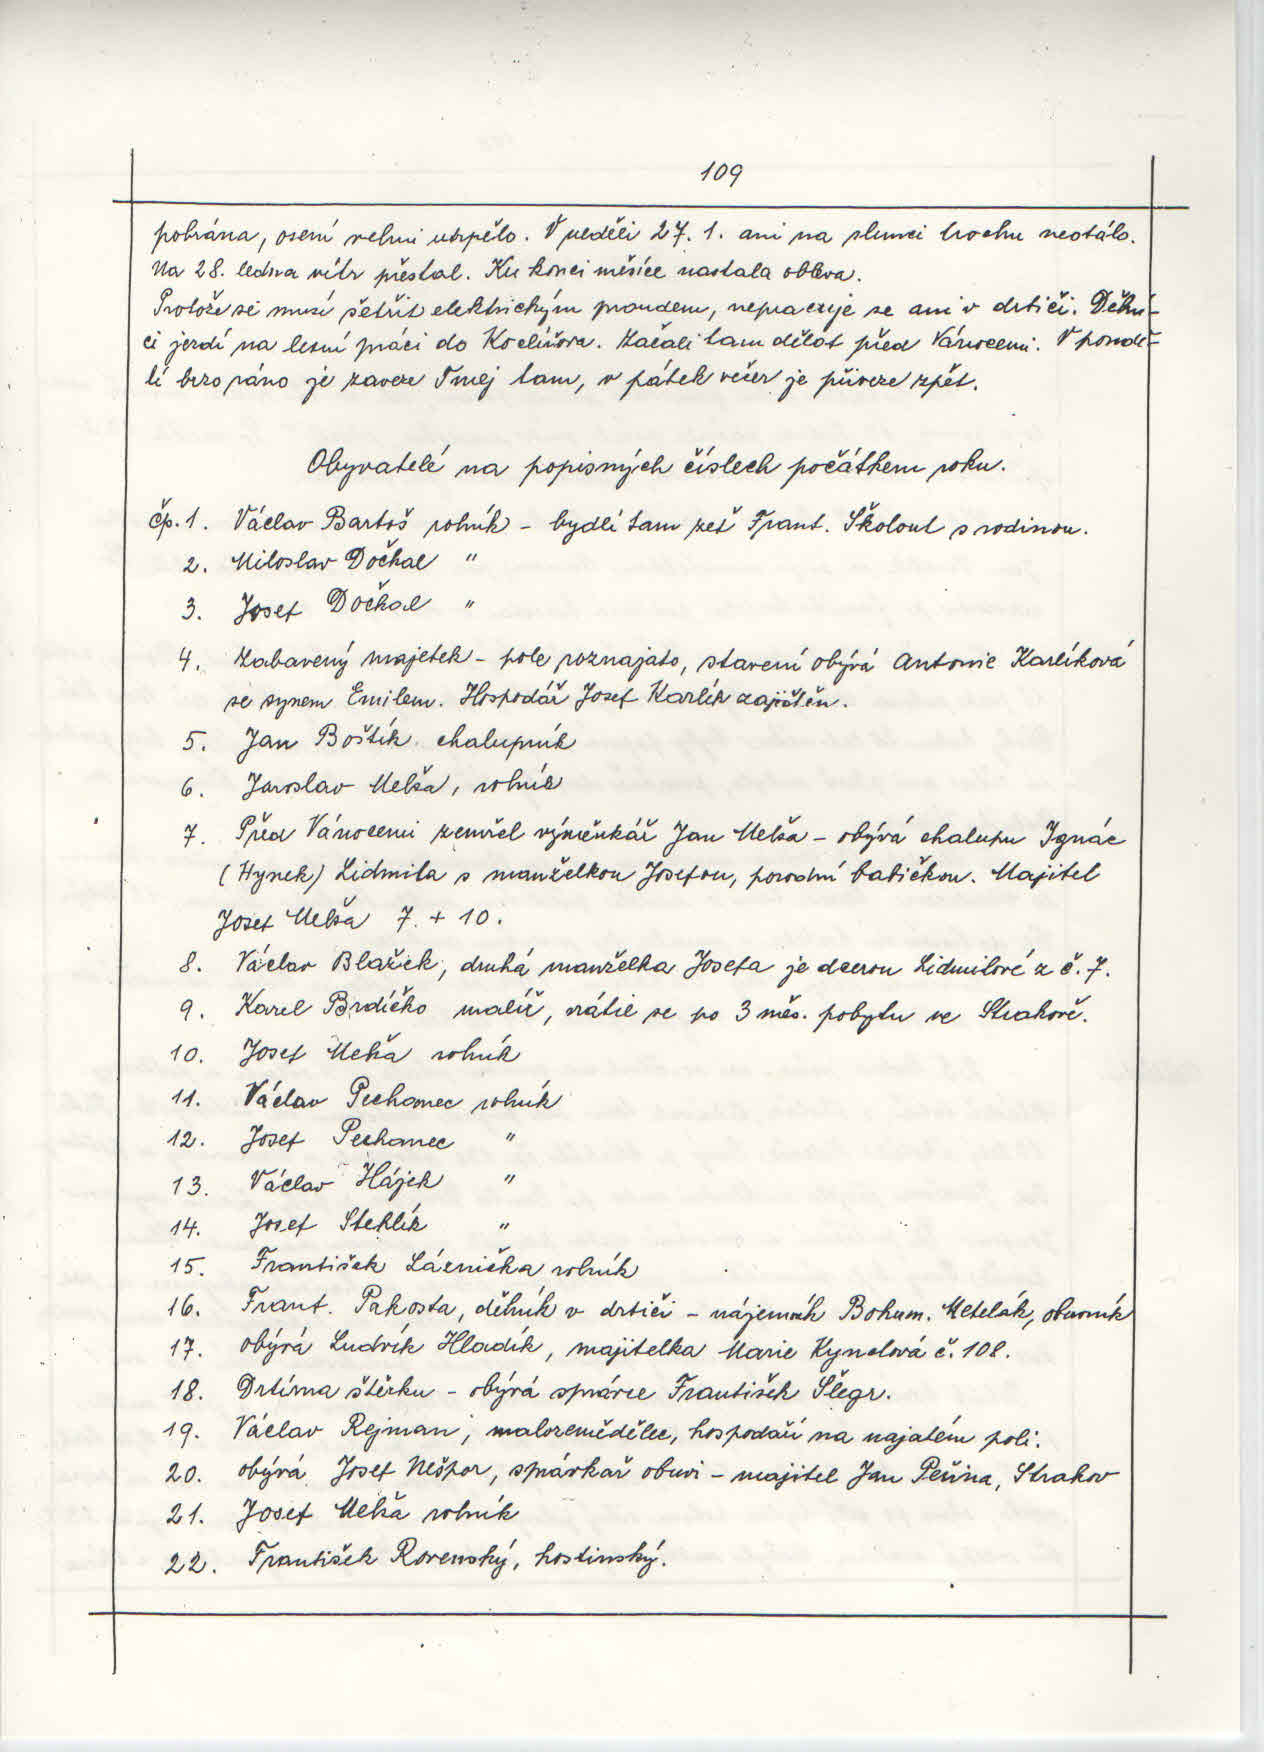 109
pobrána, osení velmi utrpělo. V neděli 27. 1. ani na slunci trochu neotálo.
Na 28. ledna vítr přestal. Ku konci měsíce nastala obleva.
Protože se musí šetřit elektrickým proudem, nepracuje se ani v drtiči. Dělní-
ci jezdí na lesní práci do Koclířova. Začali tam dělat před Vánocemi. V pondě-
lí brzo ráno je zaveze Tmej tam, v pátek večer je přiveze zpět.
Obyvatelé na popisných číslech počátkem roku.
čp. 1. Václav Bartoš rolník - bydlí tam zeť Frant. Školout s rodinou.
2. Miloslav Dočkal "
3. Josef Dočkal "
4. Zabavený majetek - pole roznajato, stavení obývá Antonie Karlíková
se synem Emilem. Hospodář Josef Karlík zajištěn.
5. Jan Boštík chalupník
6. Jaroslav Melša, rolník
7. Před Vánocemi zemřel výměnkář Jan Melša - obývá chalupu Ignác
(Hynek) Lidmila s manželkou Josefou, porodní babičkou. Majitel
Josef Melša 7. + 10.
8. Václav Blažek, druhá manželka Josefa je dcerou Lidmilové z č. 7.
9. Karel Brdíčko malíř, vrátil se po 3 měs. pobytu ve Strakově.
10. Josef Melša rolník
11. Václav Pechanec rolník
12. Josef Pechanec "
13. Václav Hájek "
14. Josef Stehlík "
15. František Láznička rolník
16. Frant. Pakosta, dělník v drtiči - nájemník Bohum. Metelák, obuvník
17. obývá Ludvík Hladík, majitelka Marie Kynclová č. 108.
18. Drtírna štěrku - obývá správce František Šlegr.
19. Václav Rejman, malozemědělec, hospodaří na najatém poli.
20. obývá Josef Nešpor, správkař obuvi - majitel Jan Peřina, Strakov
21. Josef Melša rolník
22. František Rovenský, hostinský.